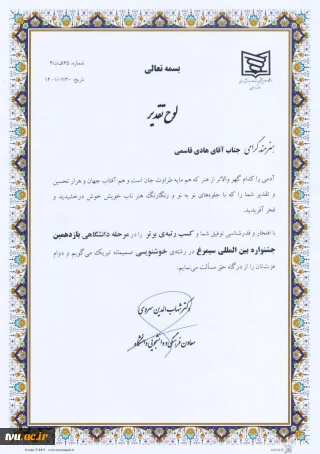 بسمه تعالی
شماره: ۴۱/د/۶۵
تاریخ: ۱۴۰۱/۰۷/۳۰
لوح تقدیر
هنرمند گرامی جناب آقای هادی قاسمی
آدمی را کدام گهر والاتر از هنر که هم مایه طراوت جان است و هم آفتاب جهان و هزار تحسین
و تقدیر شما را که با جلوه‌های نو به نو و رنگارنگ هنر ناب خویش خوش درخشیدید و
فخر آفریدید.
با افتخار و قدرشناسی توفیق شما و کسب رتبه‌ی برتر را در مرحله دانشگاهی یازدهمین
جشنواره بین المللی سیمرغ در رشته‌ی خوشنویسی صمیمانه تبریک می‌گویم و دوام
عزت‌تان را از درگاه حق مسألت می‌نمایم.
دکتر شهاب الدین سروی
معاون فرهنگی و دانشجویی دانشگاه
tvu.ac.ir